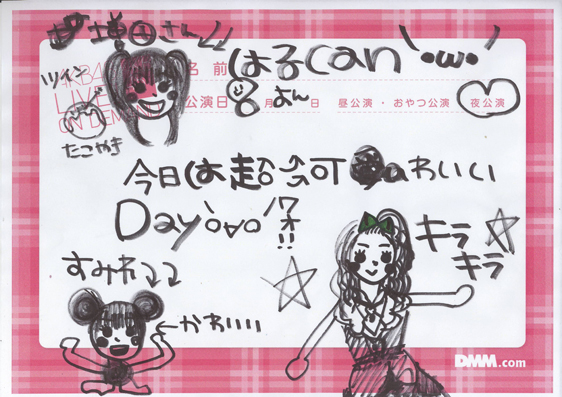 増田さん↓↓
名前 はるcan
ツイン
AKB48
LIVE!!
ON DEMAND
公演日 月 日 昼公演・おやつ公演 夜公演
たこやき
今日は超 可 わいい
Day ワオ!!
キラ
キラ
すみれ↓↓
←かわいい
DMM.com